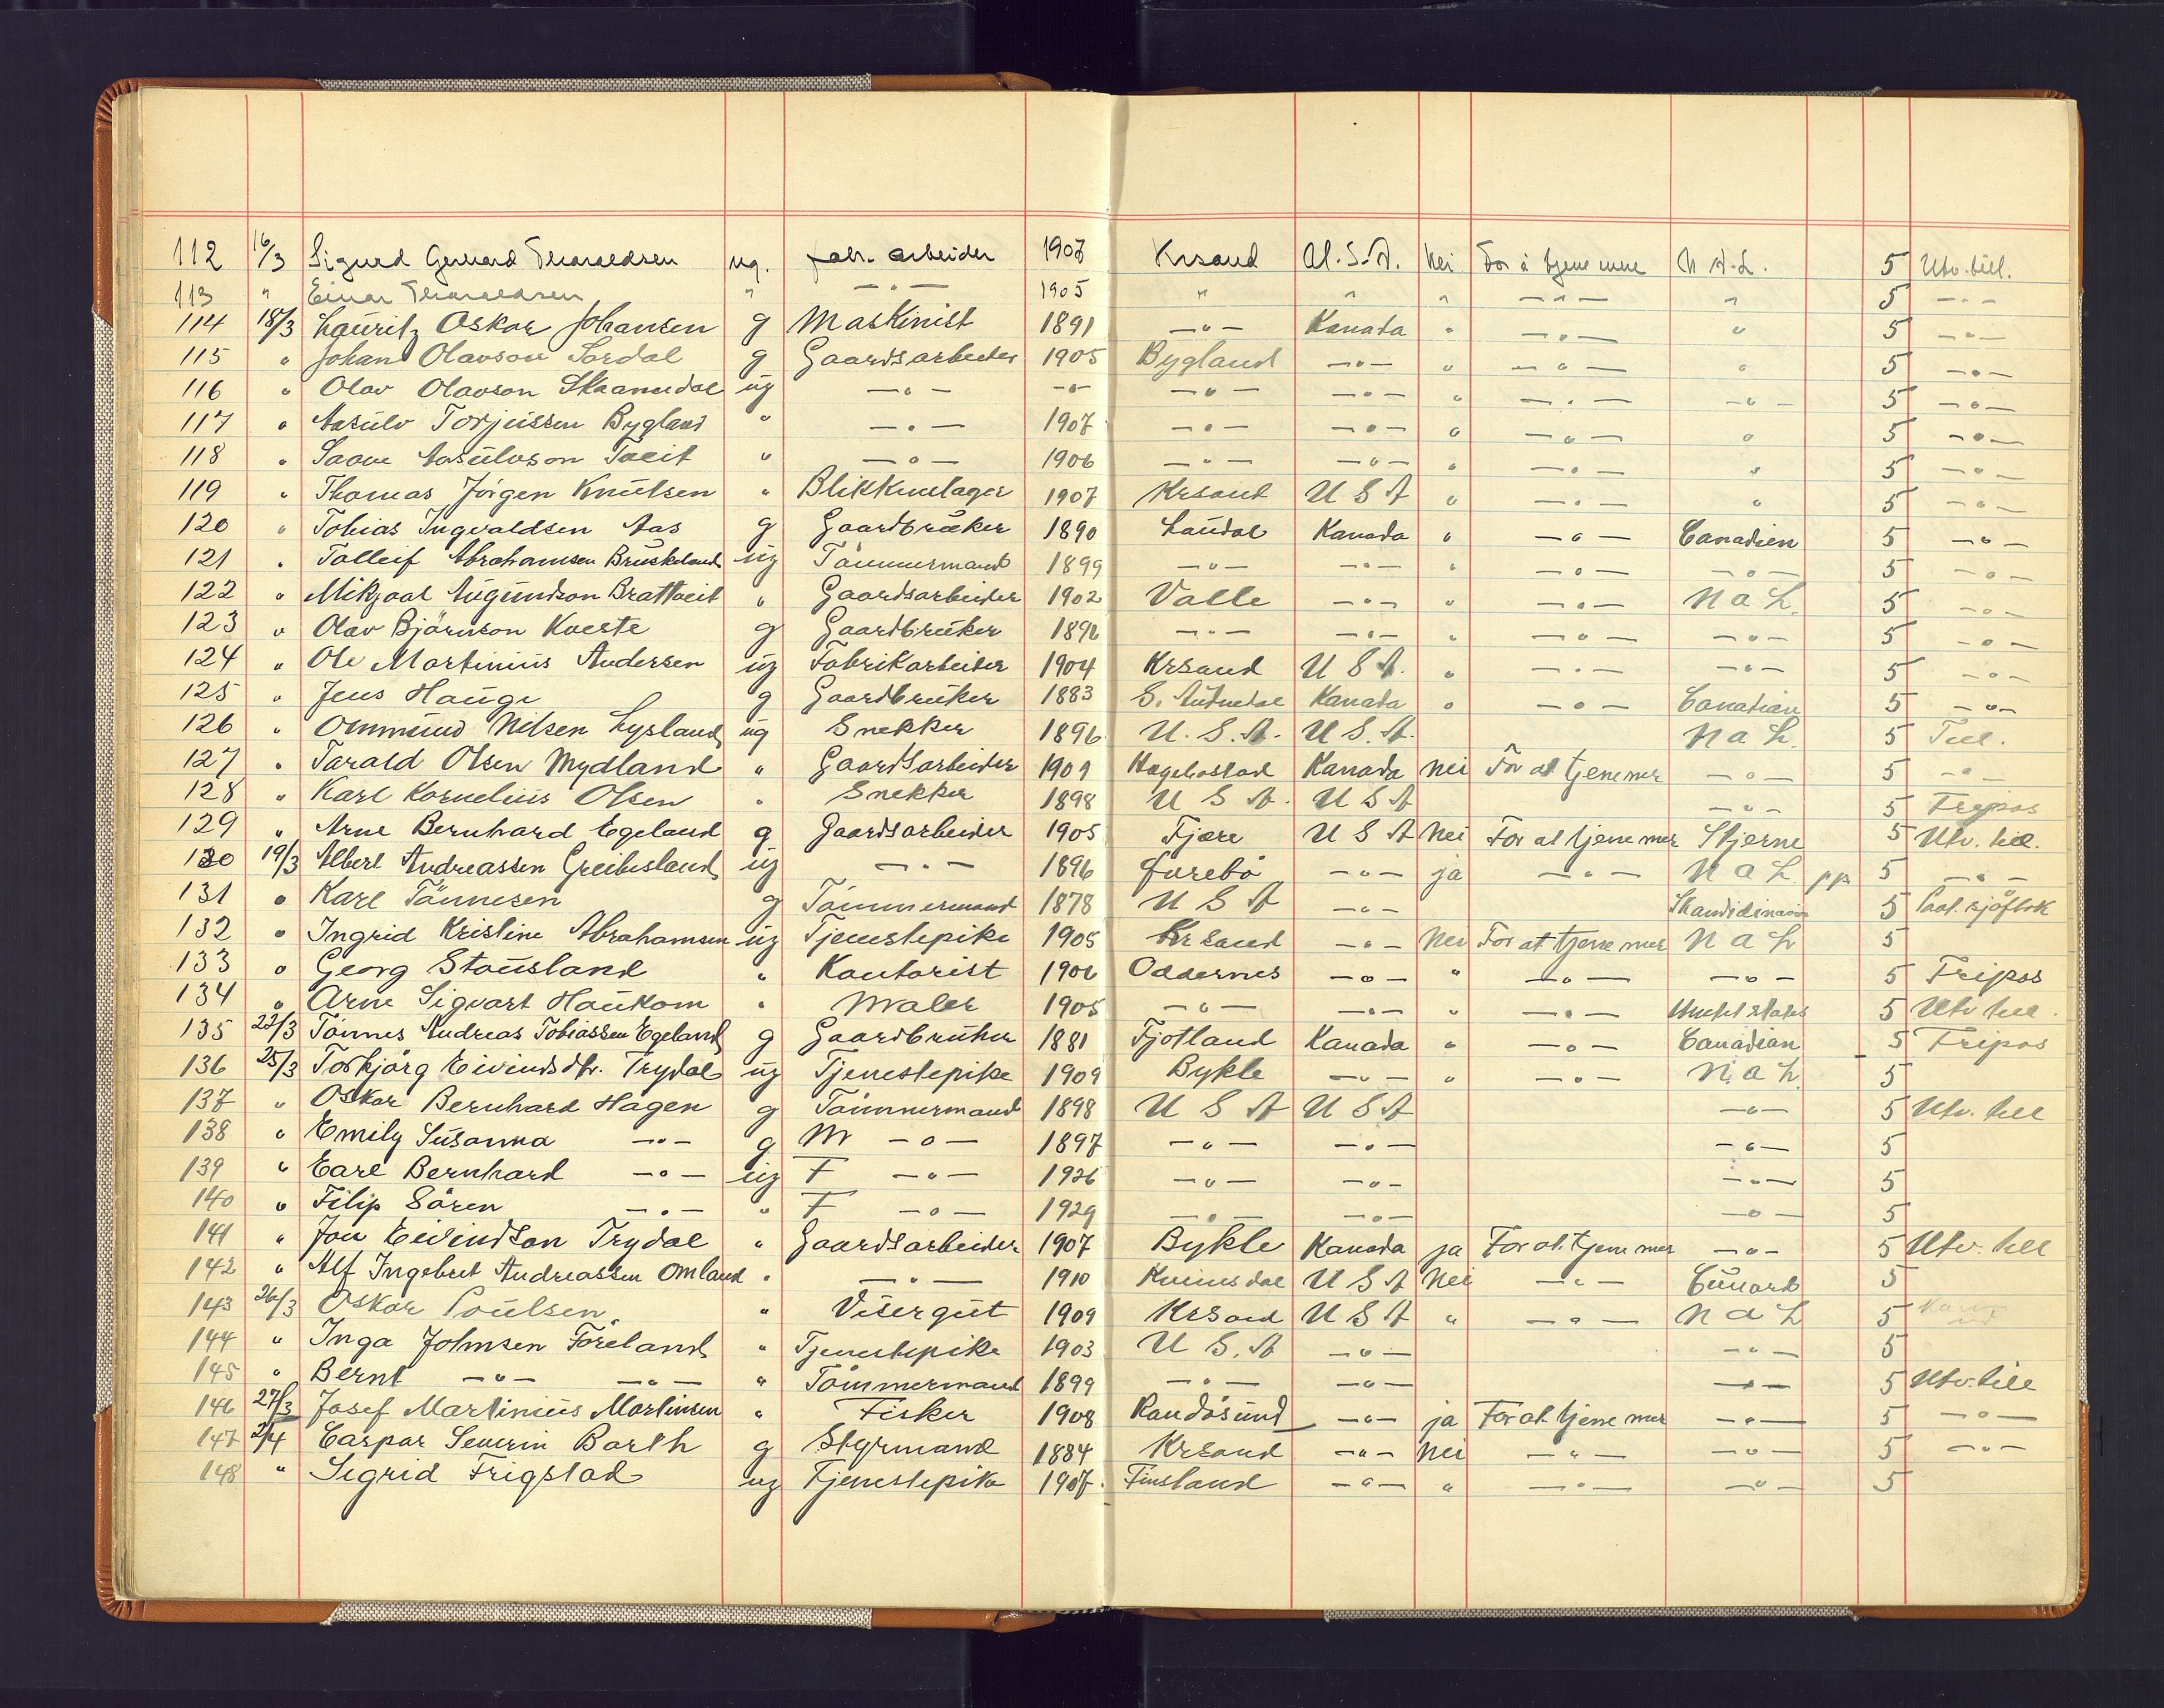 112 16/3 Sigurd Gerhard Thoraldsen ug. fabr. arbeider 1907 Krsand U.S.A. Nei For å tjene mere N.A.L. 5 Utv. till.
113 " Einar Thoraldsen " —"— 1905 " " " —"— " 5 —"—
114 18/3 Lauritz Oskar Johansen g Maskinist 1891 —"— Kanada " —"— " 5 —"—
115 " Johan Olavson Sordal g Gaardsarbeider 1905 Bygland —"— " —"— " 5 —"—
116 " Olav Olavson Skaamedal ug —"— —"— —"— —"— " —"— —"— 5 —"—
117 " Aasulv Torjussen Bygland " —"— 1907 —"— —"— " —"— " 5 —"—
118 " Aasulvson Tveit " —"— 1906 —"— —"— " —"— " 5 —"—
119 " Thomas Jörgen Knutsen " Blikkenslager 1907 Krsand U S A " —"— " 5 —"—
120 " Tobias Ingvaldsen Aas g Gaardbruker 1890 Laudal Kanada " —"— Canadien 5 —"—
121 " Tolleif Abrahamsen Bruskeland ug Tömmermand 1899 —"— —"— " —"— —"— 5 —"—
122 " Mikjaal Augundson Brattveit " Gaardsarbeider 1902 Valle —"— " —"— N a L. 5 —"—
123 " Olav Björnson Kveste g Gaardbruker 1896 —"— —"— " —"— —"— 5 —"—
124 " Ole Martinius Andersen ug Fabrikarbeider 1904 Krsand U S A. " —"— —"— 5 —"—
125 " Jens Hauge g Gaardbruker 1883 S. Audnedal Kanada " —"— Canadian 5 —"—
126 " Ommund Nilsen Lysland ug Snekker 1896 U.S.A. U.S.A. N a L. 5 Till.
127 " Tarald Olsen Mydland " Gaardsarbeider 1901 Hægebostad Kanada Nei For at tjene mer —"— 5 —"—
128 " Karl Kornelius Olsen " Snekker 1898 U S A. U S A —"— 5 Fripas
129 " Arne Bernhard Egeland g Gaardsarbeider 1905 Fjære U S A Nei For at tjene mer Stjerne 5 Utv. till.
130 19/3 Albert Andreassen Greibesland ug —"— 1896 Örebö —"— ja —"— N a L. 5 —"—
131 " Karl Tönnesen g Tömmermand 1878 U S A —"— Skandidinavien 5
132 " Ingrid Kristine Abrahamsen ug Tjenestepike 1905 Krsand —"— Nei For at tjene mer N a L 5
133 " Georg Stousland " Kontorist 1906 Oddernes —"— " —"— —"— 5 Fripas
134 " Arne Sigvart Haukom " Maler 1905 —"— —"— " —"— United states 5 Utv till.
135 22/3 Tönnes Andreas Tobiassen Egeland g Gaardbruker 1881 Fjotland Kanada " —"— Canadian 5 Fripas
136 25/3 Torbjörg Eivindsdtr. Trydal ug Tjenestepike 1909 Bykle —"— " —"— N. a L. 5
137 " Oskar Bernhard Hagen g Tömmermand 1898 U S A U S A —"— 5 Utv. till
138 " Emily Susanna —"— g M —"— 1897 —"— —"— —"— 5
139 " Earl Bernhard —"— ug F —"— 1926 —"— —"— —"— 5
140 " Filip Sören —"— " F —"— 1929 —"— —"— —"— 5
141 " Jon Eivindson Trydal " Gaardsarbeider 1907 Bykle Kanada ja For at tjene mer —"— 5 Utv. till
142 " Alf Ingebret Andreassen Omland " —"— 1910 Kvinesdal U S A Nei —"— Cunard 5
143 26/3 Oskar Poulsen " Visergut 1909 Krsand U S A " —"— N a L 5
144 " Inga Johnsen Föreland " Tjenestepike 1903 U S. A —"— —"— 5
145 " Bernt —"— —"— " Tömmermand 1899 —"— —"— —"— 5 Utv. till
146 27/3 Josef Martinius Martinsen " Fisker 1908 Randösund —"— ja For at tjene mer —"— 5 —"—
147 2/4 Caspar Severin Barth g Styrmand 1884 Krsand —"— Nei —"— —"— 5 —"—
148 " Sigrid Frigstad ug Tjenestepike 1907 Finsland —"— " —"— —"— 5